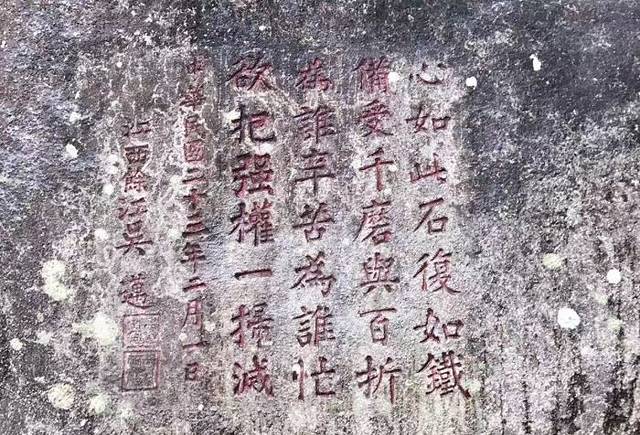 心如此石復如鐵
備受千磨與百折
為誰辛苦為誰忙
欲把强權一掃滅
中華民國二十二年二月一日
江西餘江吳邁